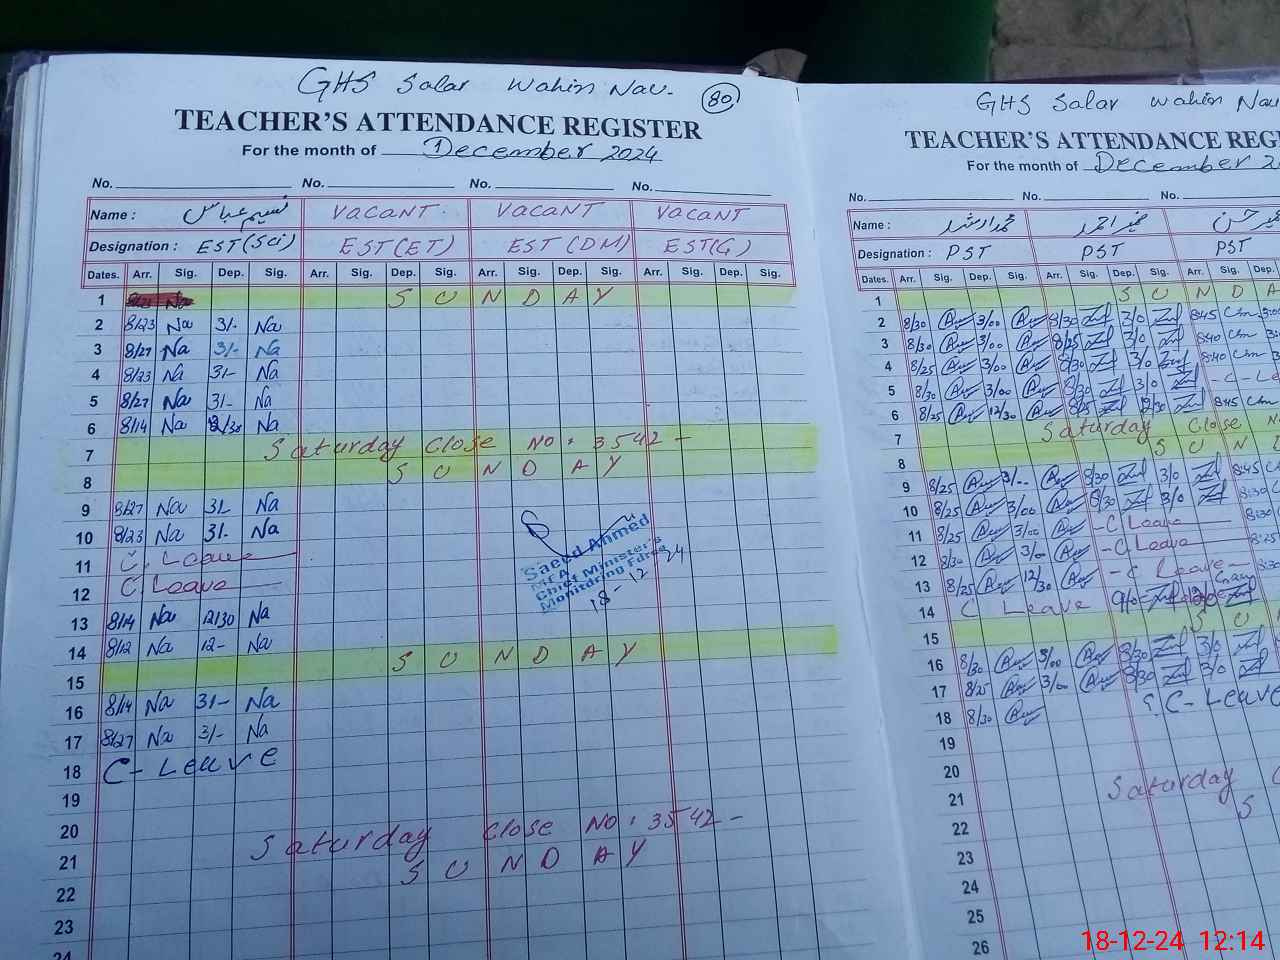 GHS Salar Wahin Nav. 80
TEACHER'S ATTENDANCE REGISTER
For the month of December 2024
No. No. No. No.
Name : نسیم عباس VACANT. VACANT VACANT
Designation : EST(Sci) EST(ET) EST(DM) EST(G)
Dates. Arr. Sig. Dep. Sig. Arr. Sig. Dep. Sig. Arr. Sig. Dep. Sig. Arr. Sig. Dep. Sig.
1 SUNDAY
2 8/23 Na 3/- Na
3 8/27 Na 3/- Na
4 8/23 Na 3/- Na
5 8/27 Na 3/- Na
6 8/14 Na 12/30 Na
7 Saturday Close No: 3542-
8 SUNDAY
9 8/27 Na 3/- Na
10 8/23 Na 3/- Na
11 C. Leave
12 C Leave
13 8/14 Na 12/30 Na
14 8/12 Na 12- Na
15 SUNDAY
16 8/14 Na 3/- Na
17 8/27 Na 3/- Na
18 C-Leave
19
20
21 Saturday Close No: 3542-
22 SUNDAY
23
24
Saeed Ahmed
MEA
Chief Minister's
Monitoring Force
18-12-24
GHS Salar Wahin Nav
TEACHER'S ATTENDANCE REG
For the month of December 2
No. No. No.
Name :
Designation : PST PST PST
Dates. Arr. Sig. Dep. Sig. Arr. Sig. Dep. Sig. Arr. Sig. Dep.
1 SUNDA
2 8/30 3/00 8/30 3/0 8:45
3 8/30 3/00 8/25 3/0 8:40
4 8/25 3/00 8/30 3/0 8:40
5 8/30 3/00 8/30 3/0 -C-Le
6 8/25 12/30 8/25 12/30 8:45
7 Saturday Close N
8 SUND
9 8/25 3/-- 8/30 3/0 8:45
10 8/25 3/00 8/30 3/0 8:30
11 8/25 3/00 -C Leave 8:30
12 8/30 3/00 -C Leave 8:25
13 8/25 12/30 -C Leave- 8:30
14 C Leave
15 SU
16 8/30 3/00 8/30 3/0
17 8/25 3/00 8/30 3/0
18 8/30 C-Leave
19
20
21 Saturday C
22 S
23
24
25
26
18-12-24 12:14